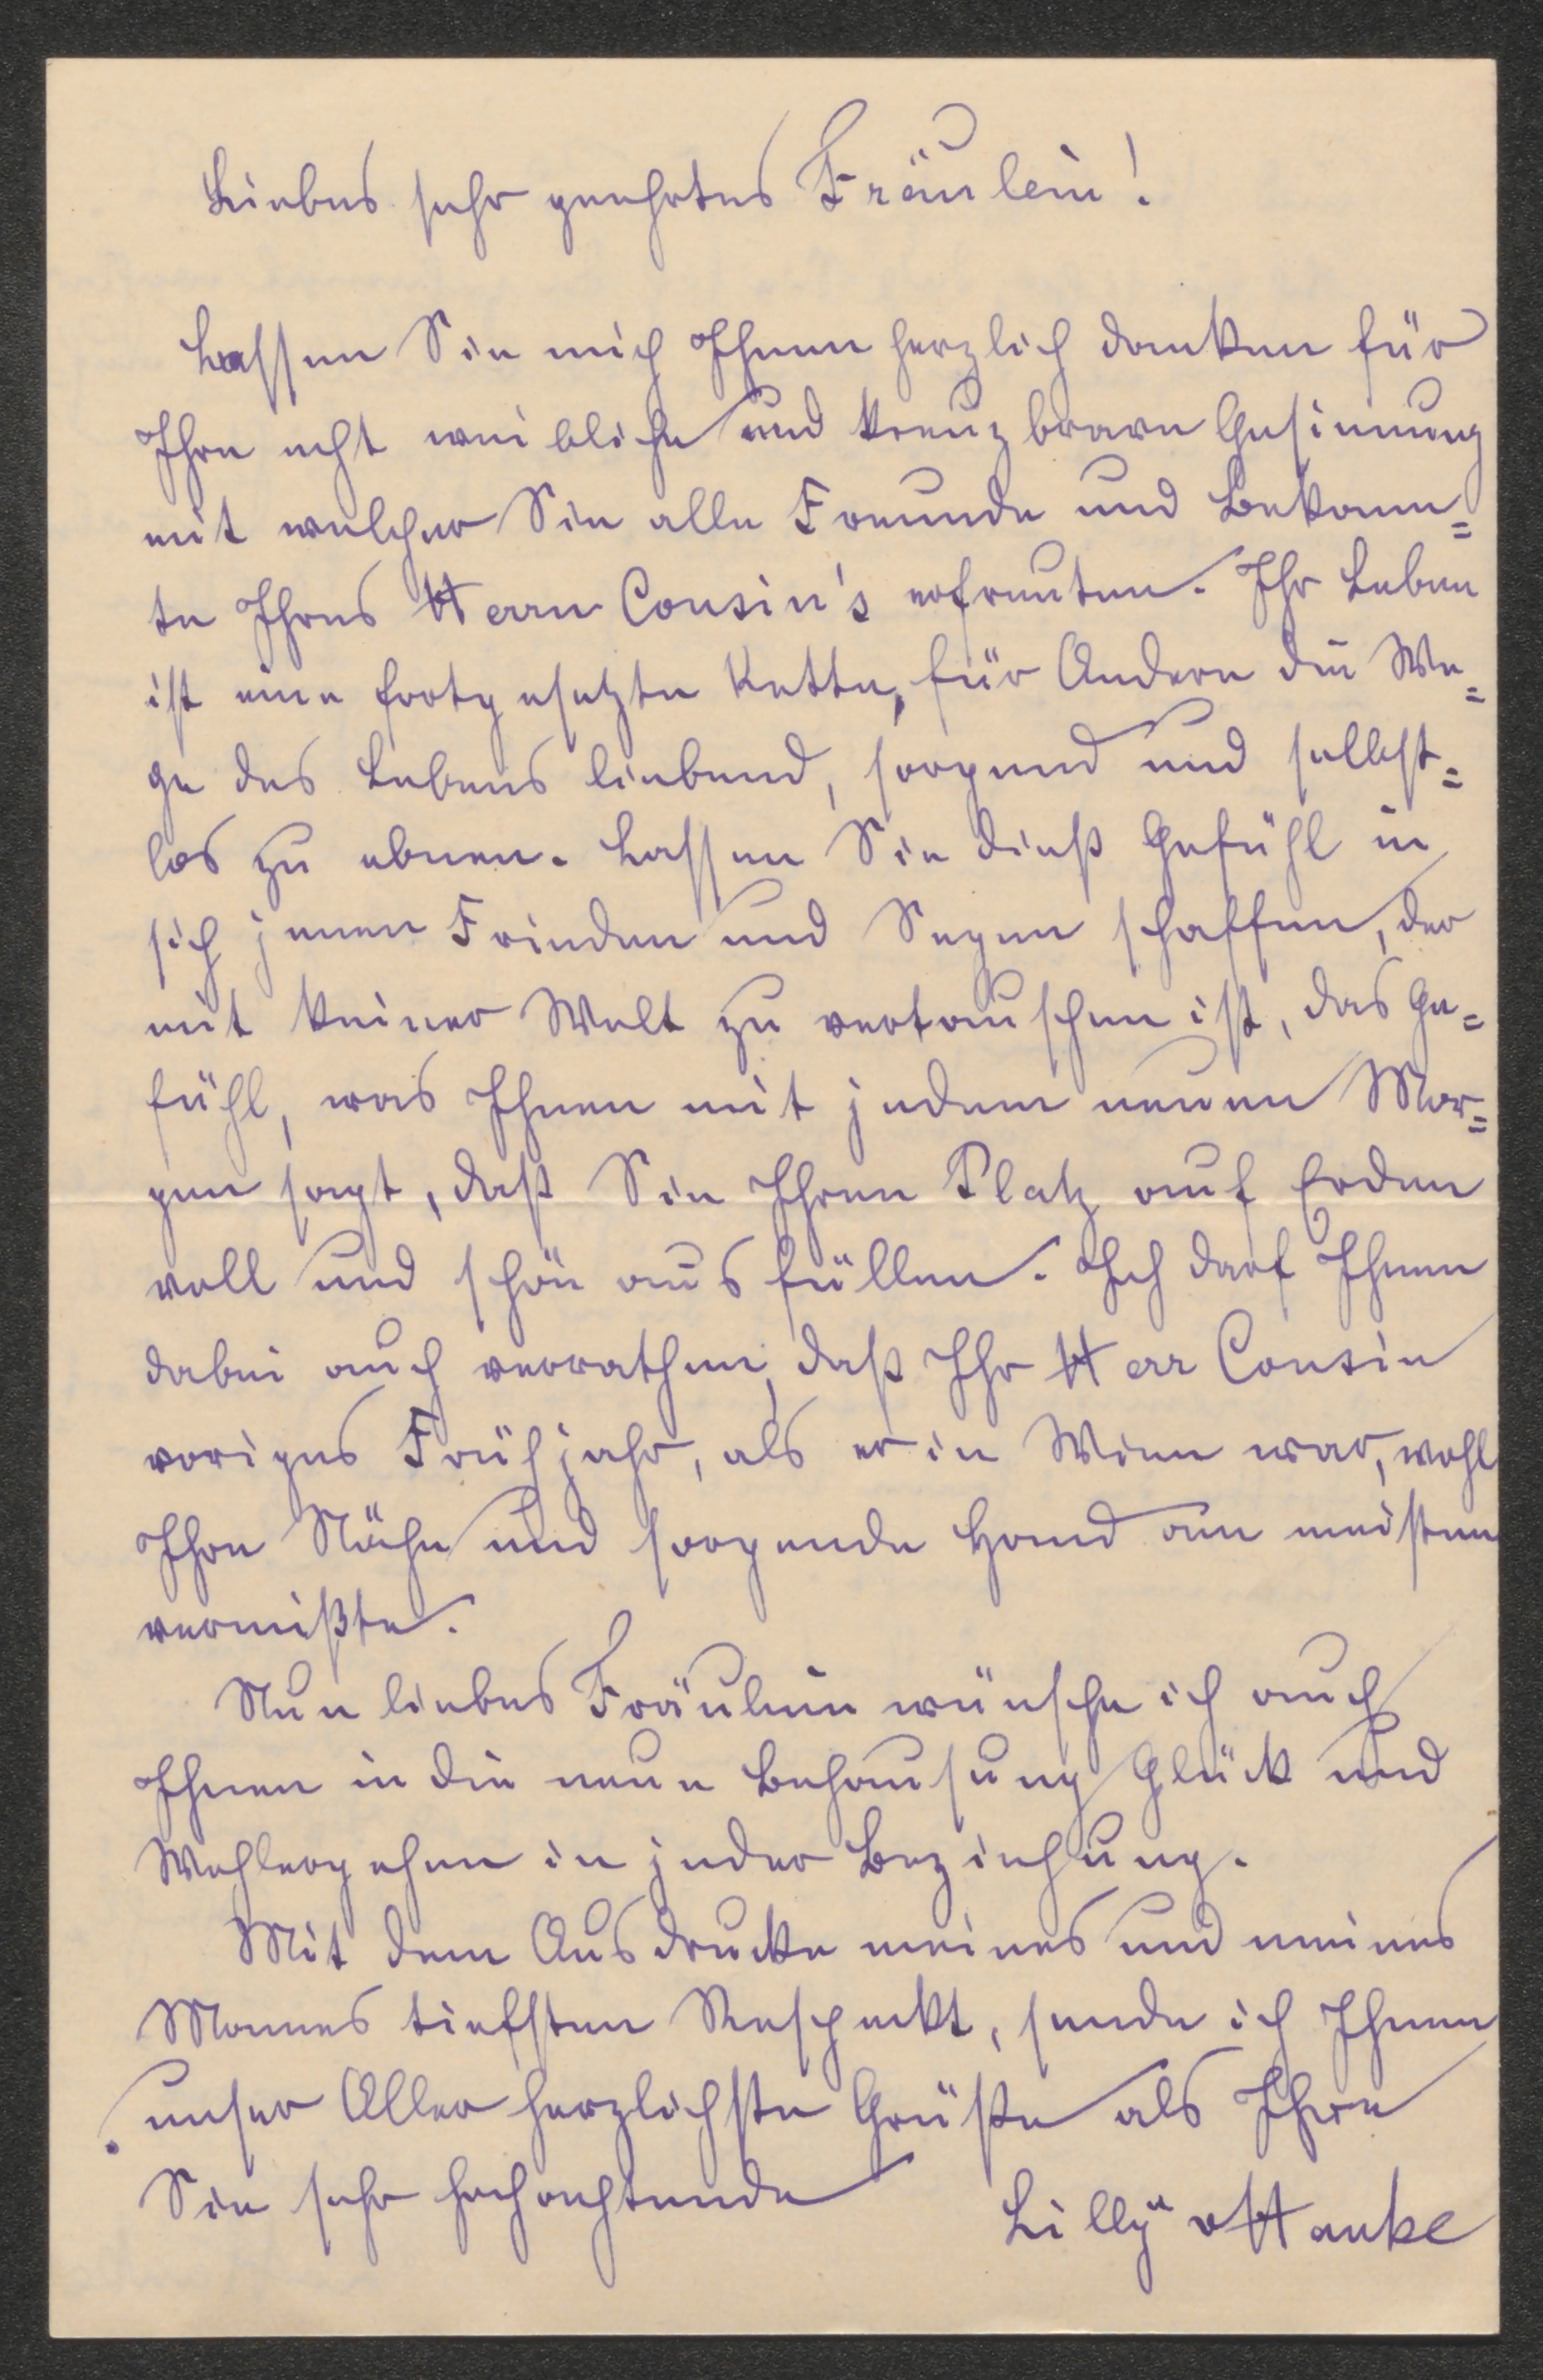 Liebes sehr geehrtes Fräulein!
Lassen Sie mich Ihnen herzlich danken für
Ihre echt weibliche und kreuzbrave Gesinnung
mit welcher Sie alle Freunde und Bekann=
te Ihres Herrn Cousin's erfreuten. Ihr Leben
ist eine fortgesetzte Kette, für Andere die We=
ge des Lebens liebend, sorgend und selbst=
los zu ebnen. Lassen Sie dieß Gefühl in
sich jenen Frieden und Segen schaffen, der
mit keiner Welt zu vertauschen ist, das Ge=
fühl, was Ihnen mit jedem neuen Mor=
gen sagt, daß Sie Ihren Platz auf Erden
voll und schön ausfüllen. Ich darf Ihnen
dabei auch verrathen, daß Ihr Herr Cousin
voriges Frühjahr, als er in Wien war, wohl
Ihre Nähe und sorgende Hand am meisten
vermißte.
Nun liebes Fräulein wünsche ich auch
Ihnen in die neue Behausung Glück und
Wohlergehen in jeder Beziehung.
Mit dem Ausdrucke meines und meines
Mannes tiefsten Respeckt, sende ich Ihnen
unser Aller herzlichste Grüße als Ihre
Sie sehr hochachtende
Lilly vHanke